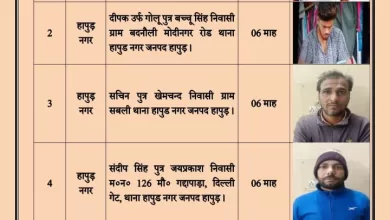 2
हापुड़
नगर
दीपक उर्फ गोलू पुत्र बच्चू सिंह निवासी
ग्राम बदनौली मोदीनगर रोड थाना
हापुड नगर जनपद हापुड़।
06 माह
3
हापुड़
नगर
सचिन पुत्र खेमचन्द निवासी ग्राम
सबली थाना हापुड नगर जनपद हापुड़।
06 माह
4
हापुड़
नगर
संदीप सिंह पुत्र जयप्रकाश निवासी
म०न० 126 मौ० गद्दापाड़ा, दिल्ली
गेट, थाना हापुड नगर जनपद हापुड़।
06 माह